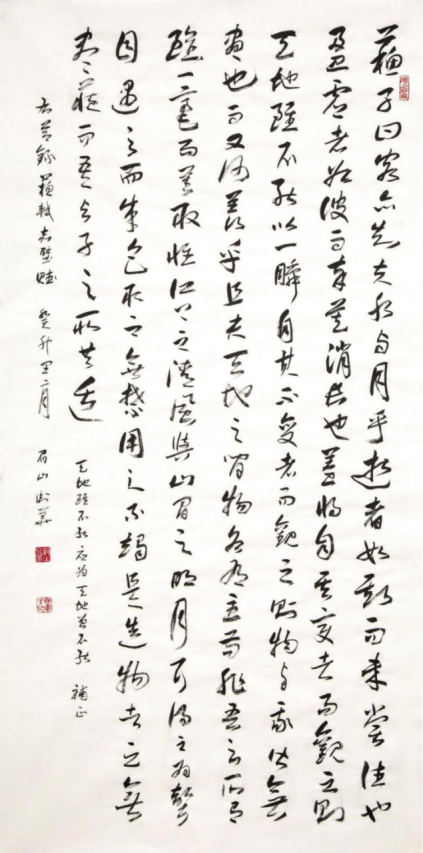 蘇子曰客亦知夫水与月乎逝者如斯而未嘗往也
盈虛者如彼而卒莫消长也蓋將自其变者而觀之则
天地雖不能以一瞬自其不变者而觀之则物与我皆无
盡也而又何羨乎且夫天地之間物各有主苟非吾之所有
雖一毫而莫取惟江上之清風與山間之明月耳得之为聲
目遇之而成色取之無禁用之不竭是造物者之無
盡藏而吾与子之所共适
右节錄蘇軾赤壁賦 癸卯 二月 山
天地雖不能应为天地曾不能 補正